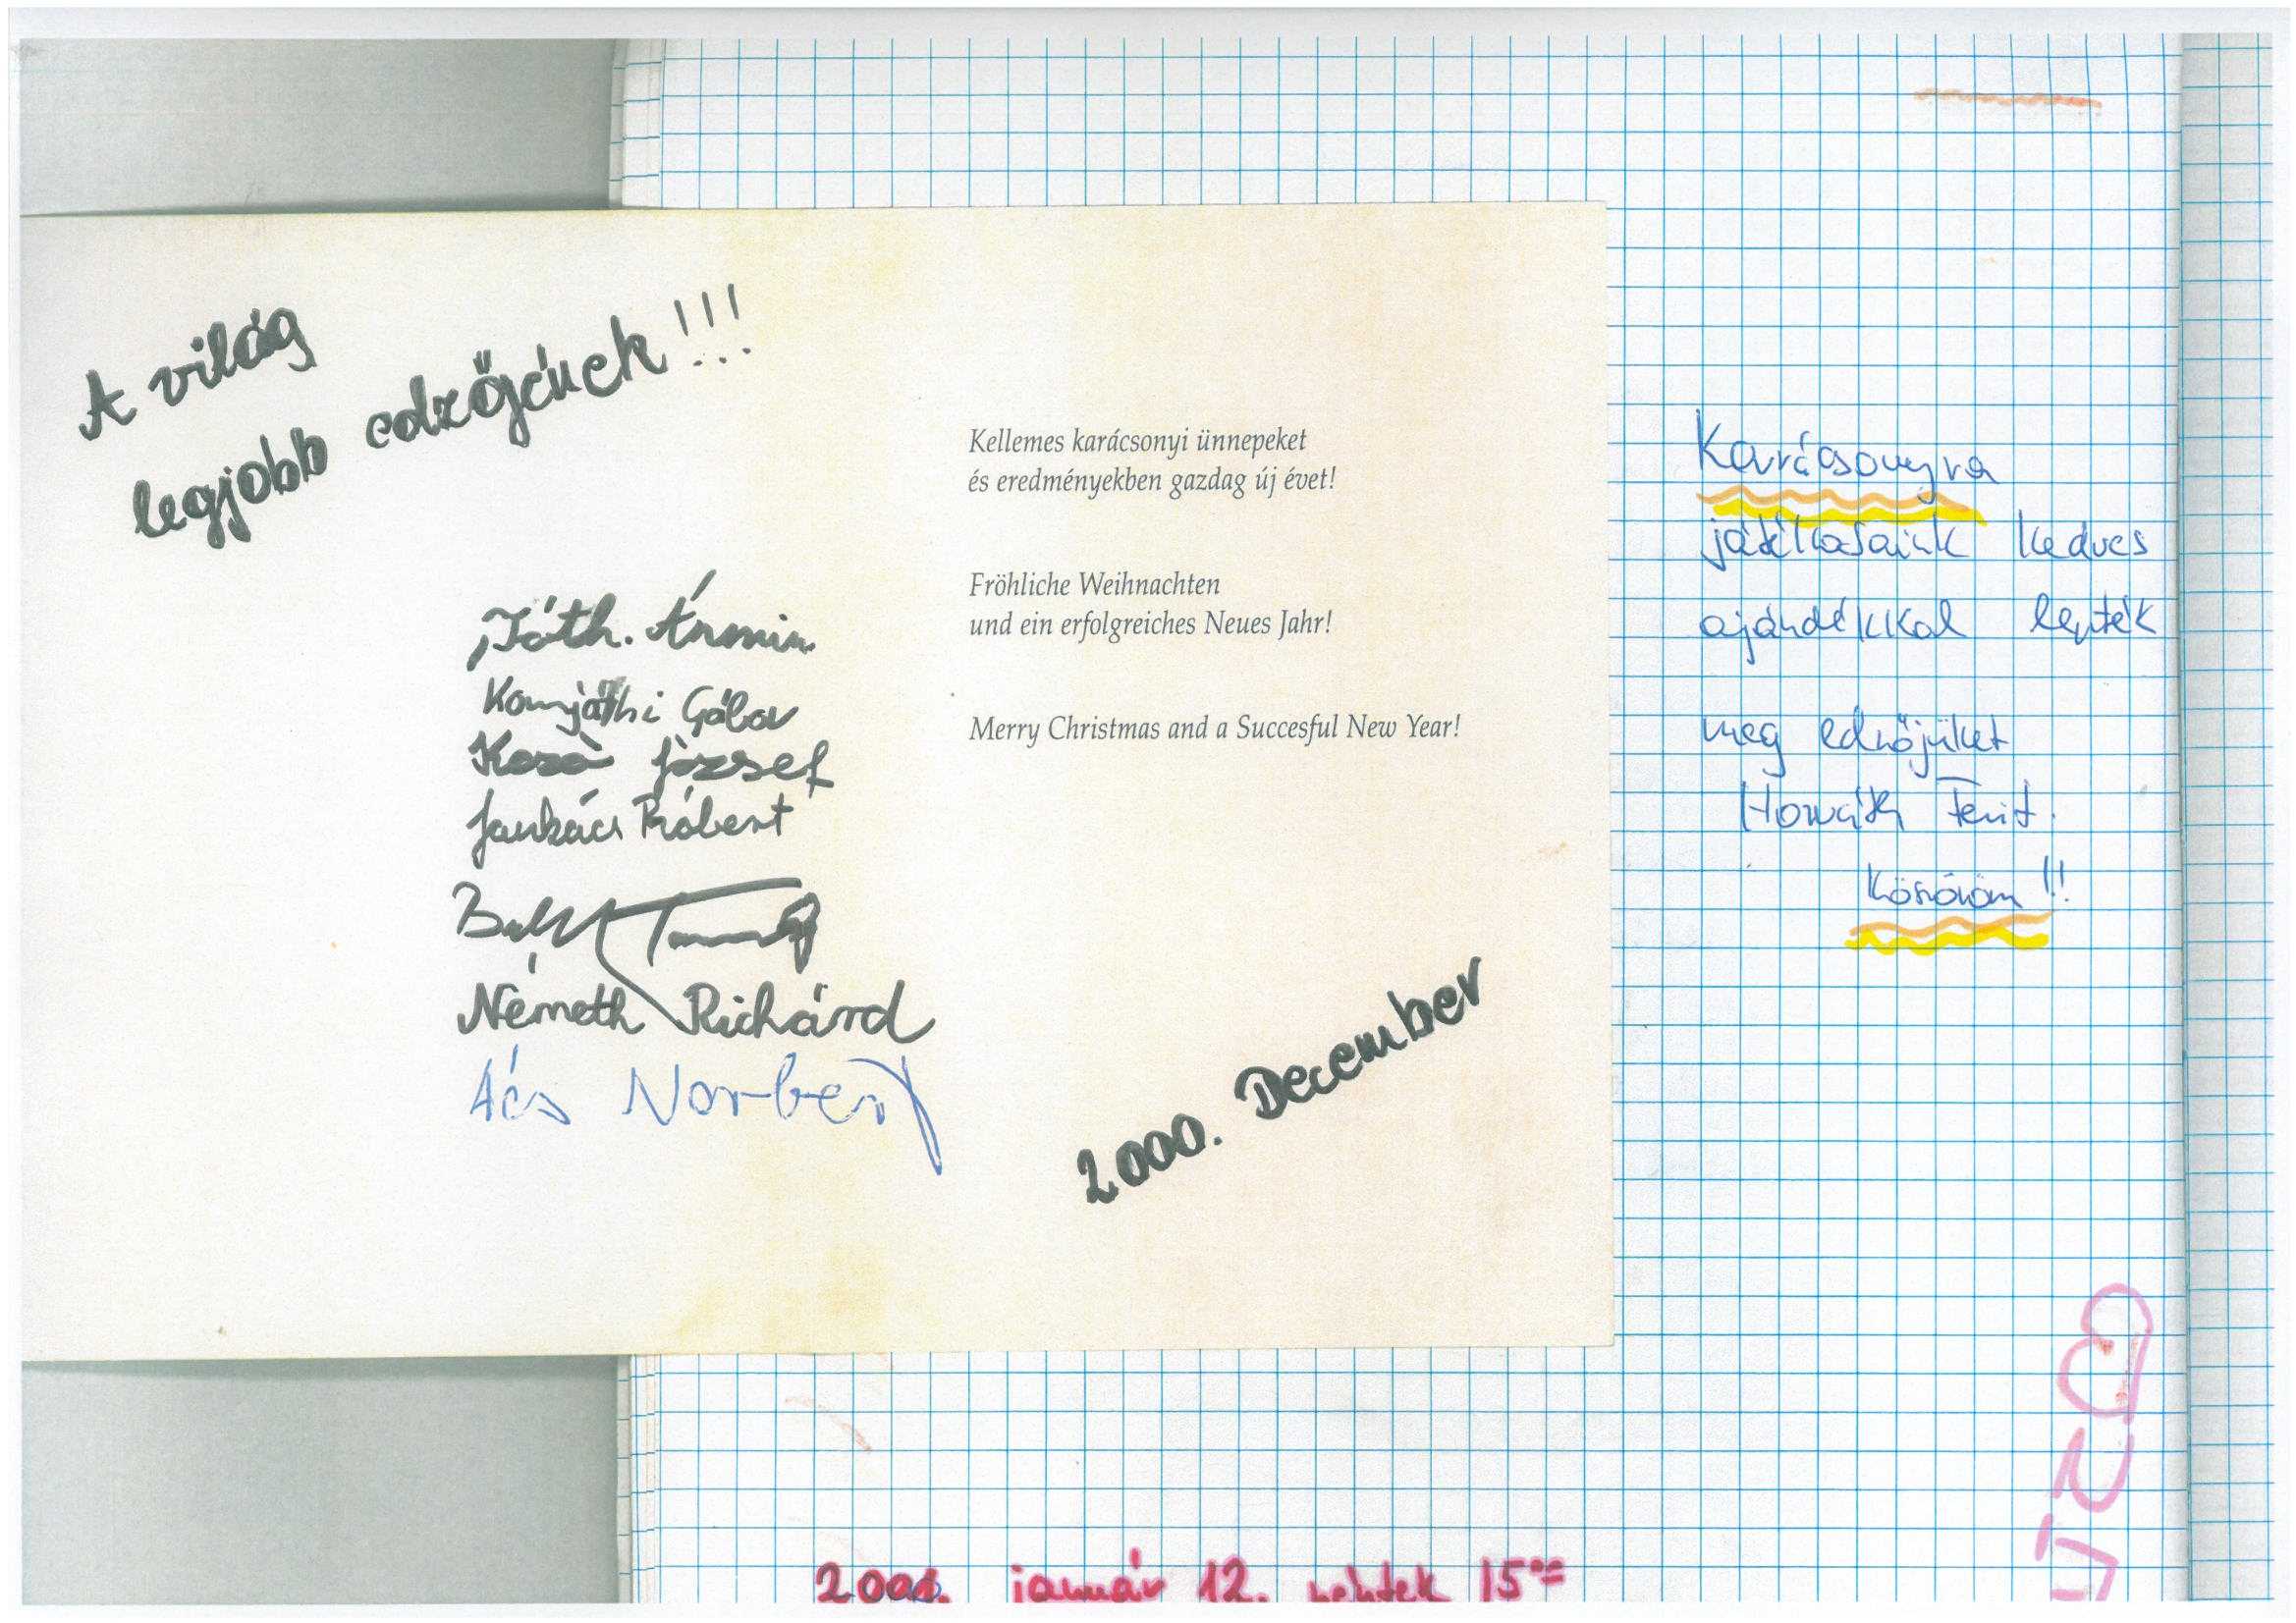 A világ
legjobb edzőjének!!!
Kellemes karácsonyi ünnepeket
és eredményekben gazdag új évet!
Fröhliche Weihnachten
und ein erfolgreiches Neues Jahr!
Merry Christmas and a Succesful New Year!
Tóth. Ármin
Komjáthi Gábor
József
Jankács Róbert
Németh Richárd
Ács Norbert
2000. December
Karácsonyra
játékosaink kedves
ajándékkal lepték
meg edzőjüket
Horváth Ferit.
Köszönöm!!
január 12. péntek 15